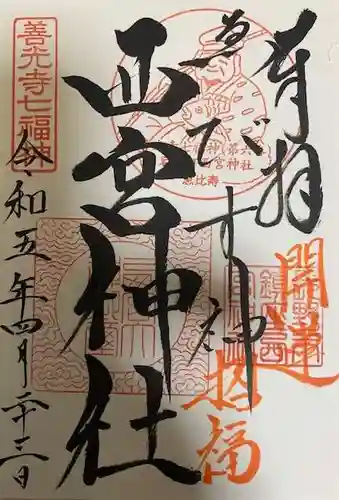 奉拝
ゑびす神
開運
招福
西宮神社
善光寺七福神
令和五年四月二十三日
西宮神社
恵比寿